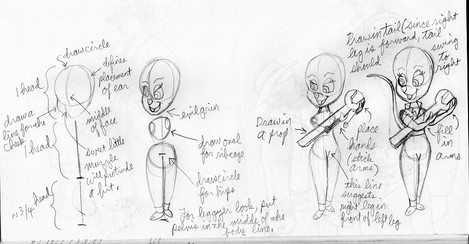 draw circle
defines
placement
of ear
1 head
draw a
line for the
cheek
middle
of face
1 head
sweet little
muzzle
will protrude
a bit.
~ 3/4 head
evil grin
draw oval
for ribcage
draw circle
for hips
For leggier look, put
pelvis in the middle of the
body line.
Draw in tail (since right
leg is forward, tail
should
swing
to
right
Draw in
a prop
place
hands
(stick
arms)
this line
suggests
right leg in
front of left leg
fill in
arms